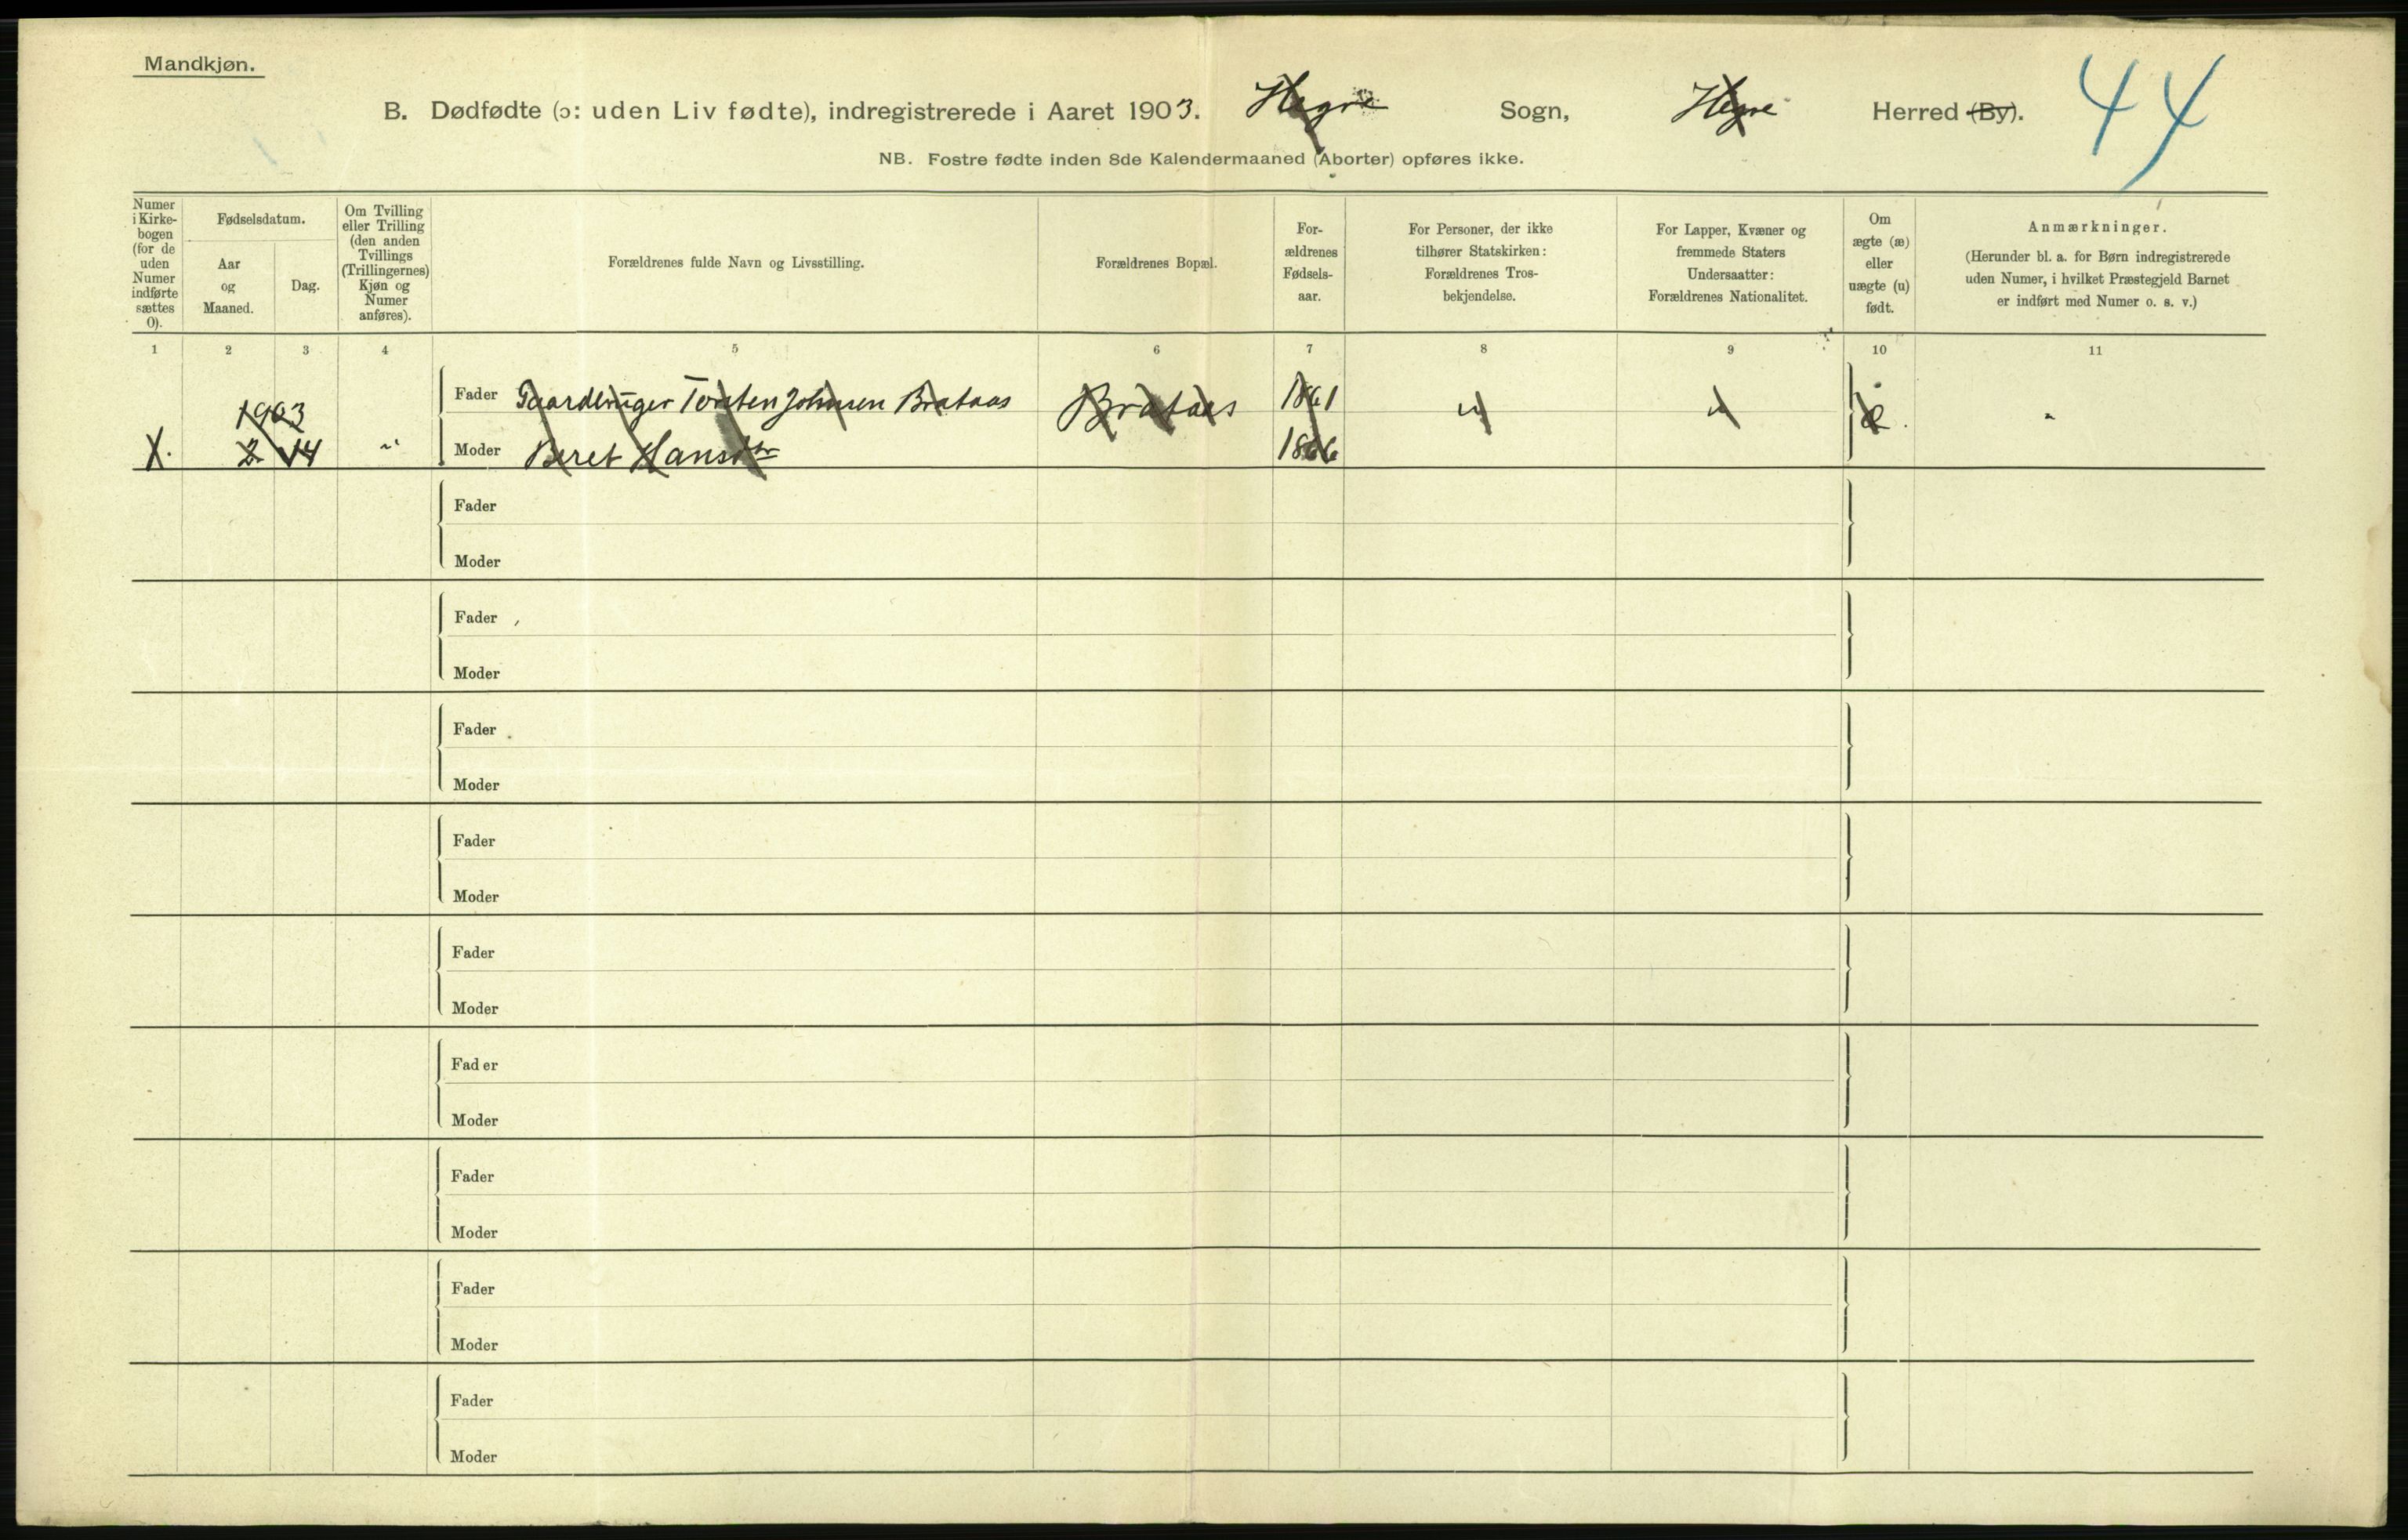 Mandkjøn.
B. Dødfødte (ɔ: uden Liv fødte), indregistrerede i Aaret 1903. Hegre Sogn, Hegre Herred (By). 44
NB. Fostre fødte inden 8de Kalendermaaned (Aborter) opføres ikke.
Numer
i Kirke-
bogen
(for de
uden
Numer
indførte
sættes
0).
Fødselsdatum.
Aar
og
Maaned.
Dag.
Om Tvilling
eller Trilling
(den anden
Tvillings
(Trillingernes)
Kjøn og
Numer
anføres).
Forældrenes fulde Navn og Livsstilling.
Forældrenes Bopæl.
For-
ældrenes
Fødsels-
aar.
For Personer, der ikke
tilhører Statskirken:
Forældrenes Tros-
bekjendelse.
For Lapper, Kvæner og
fremmede Staters
Undersaatter:
Forældrenes Nationalitet.
Om
ægte (æ)
eller
uægte (u)
født.
Anmærkninger.
(Herunder bl. a. for Børn indregistrerede
uden Numer, i hvilket Præstegjeld Barnet
er indført med Numer o. s. v.)
1 2 3 4 5 6 7 8 9 10 11
1903
Fader Gaardbruger Torsten Johnsen Brataas Brataas 1861 " " æ. "
1. 2 14 " Moder Beret Hansdtr 1866
Fader
Moder
Fader
Moder
Fader
Moder
Fader
Moder
Fader
Moder
Fader
Moder
Fader
Moder
Fader
Moder
Fader
Moder